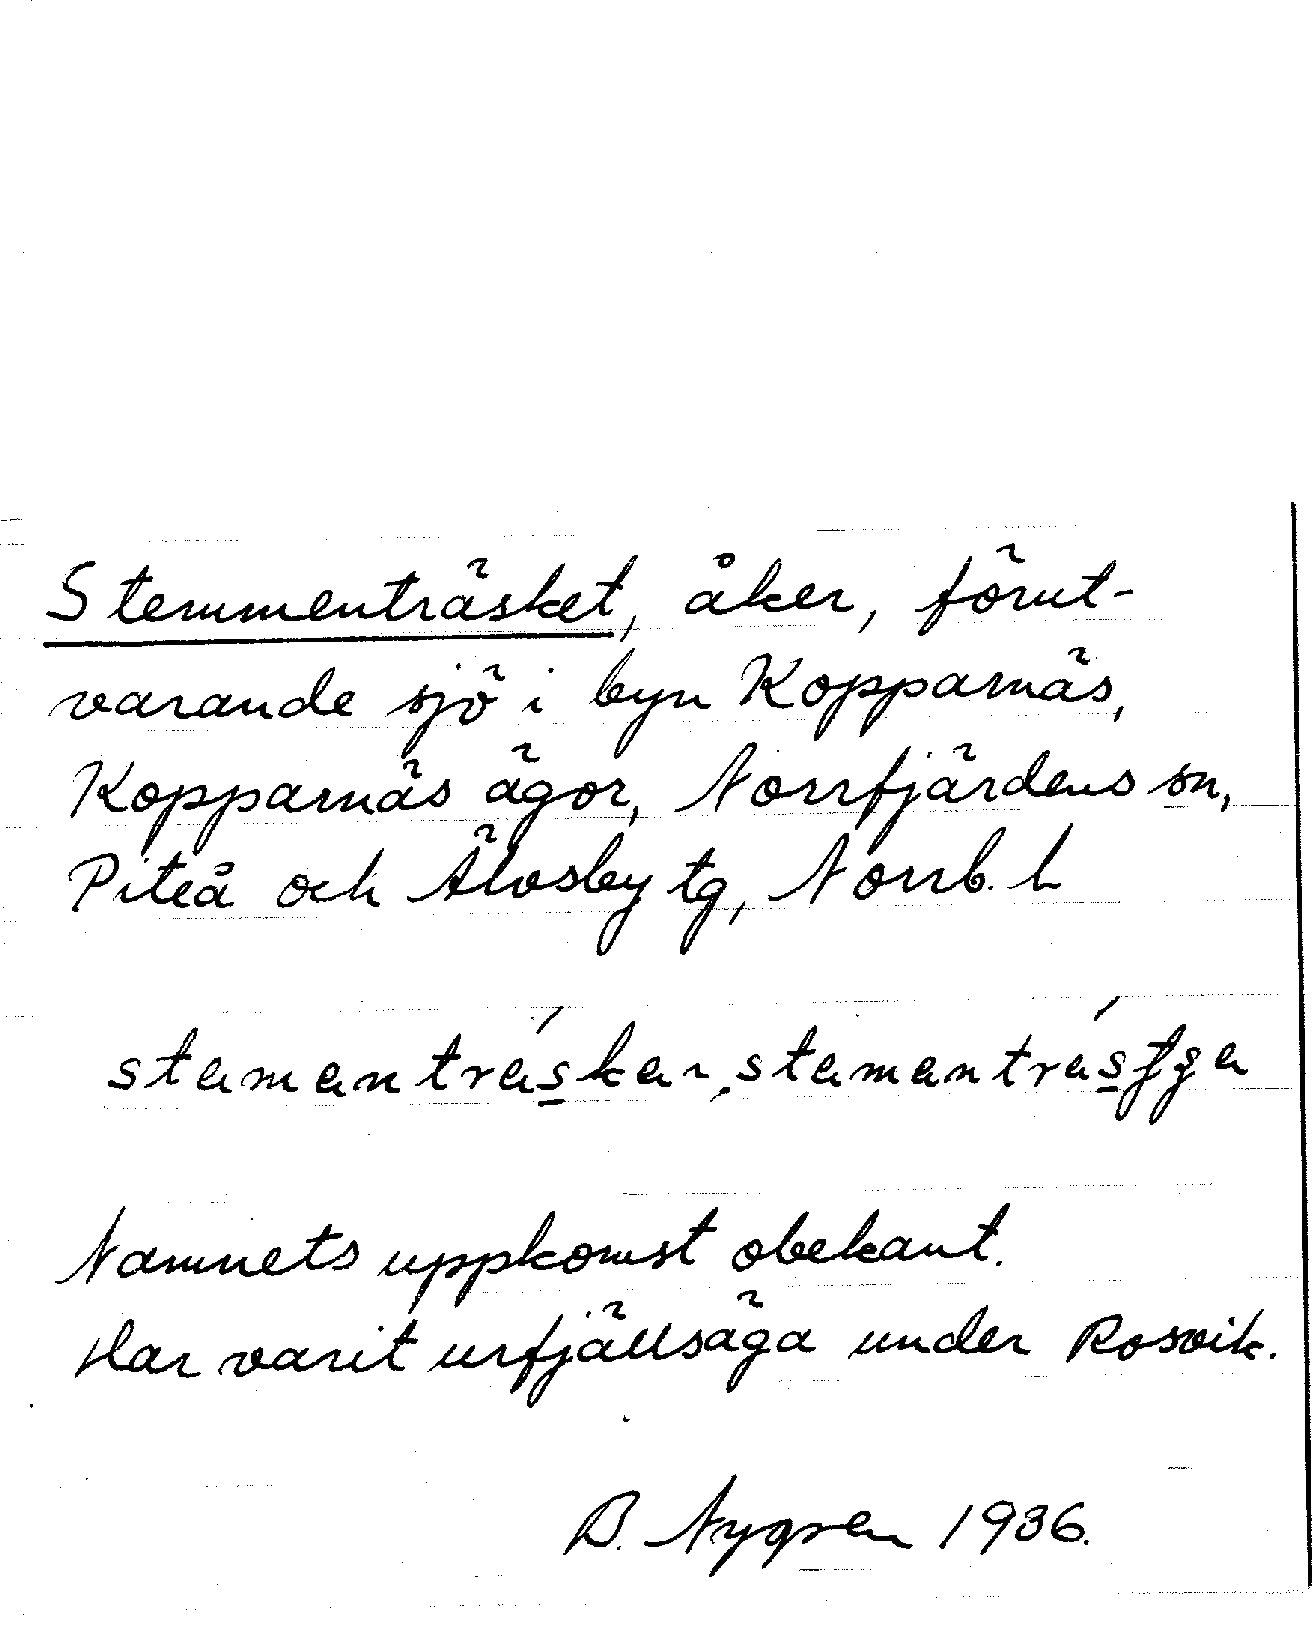 Stemmenträsket, åker, förut-
varande sjö i byn Kopparnäs,
Kopparnäs ägor, Norrfjärdens sn,
Piteå och Älvsby tg, Norrb. l
Namnets uppkomst obekant.
Har varit urfjällsäga under Rosvik.
B. Nygren 1936.